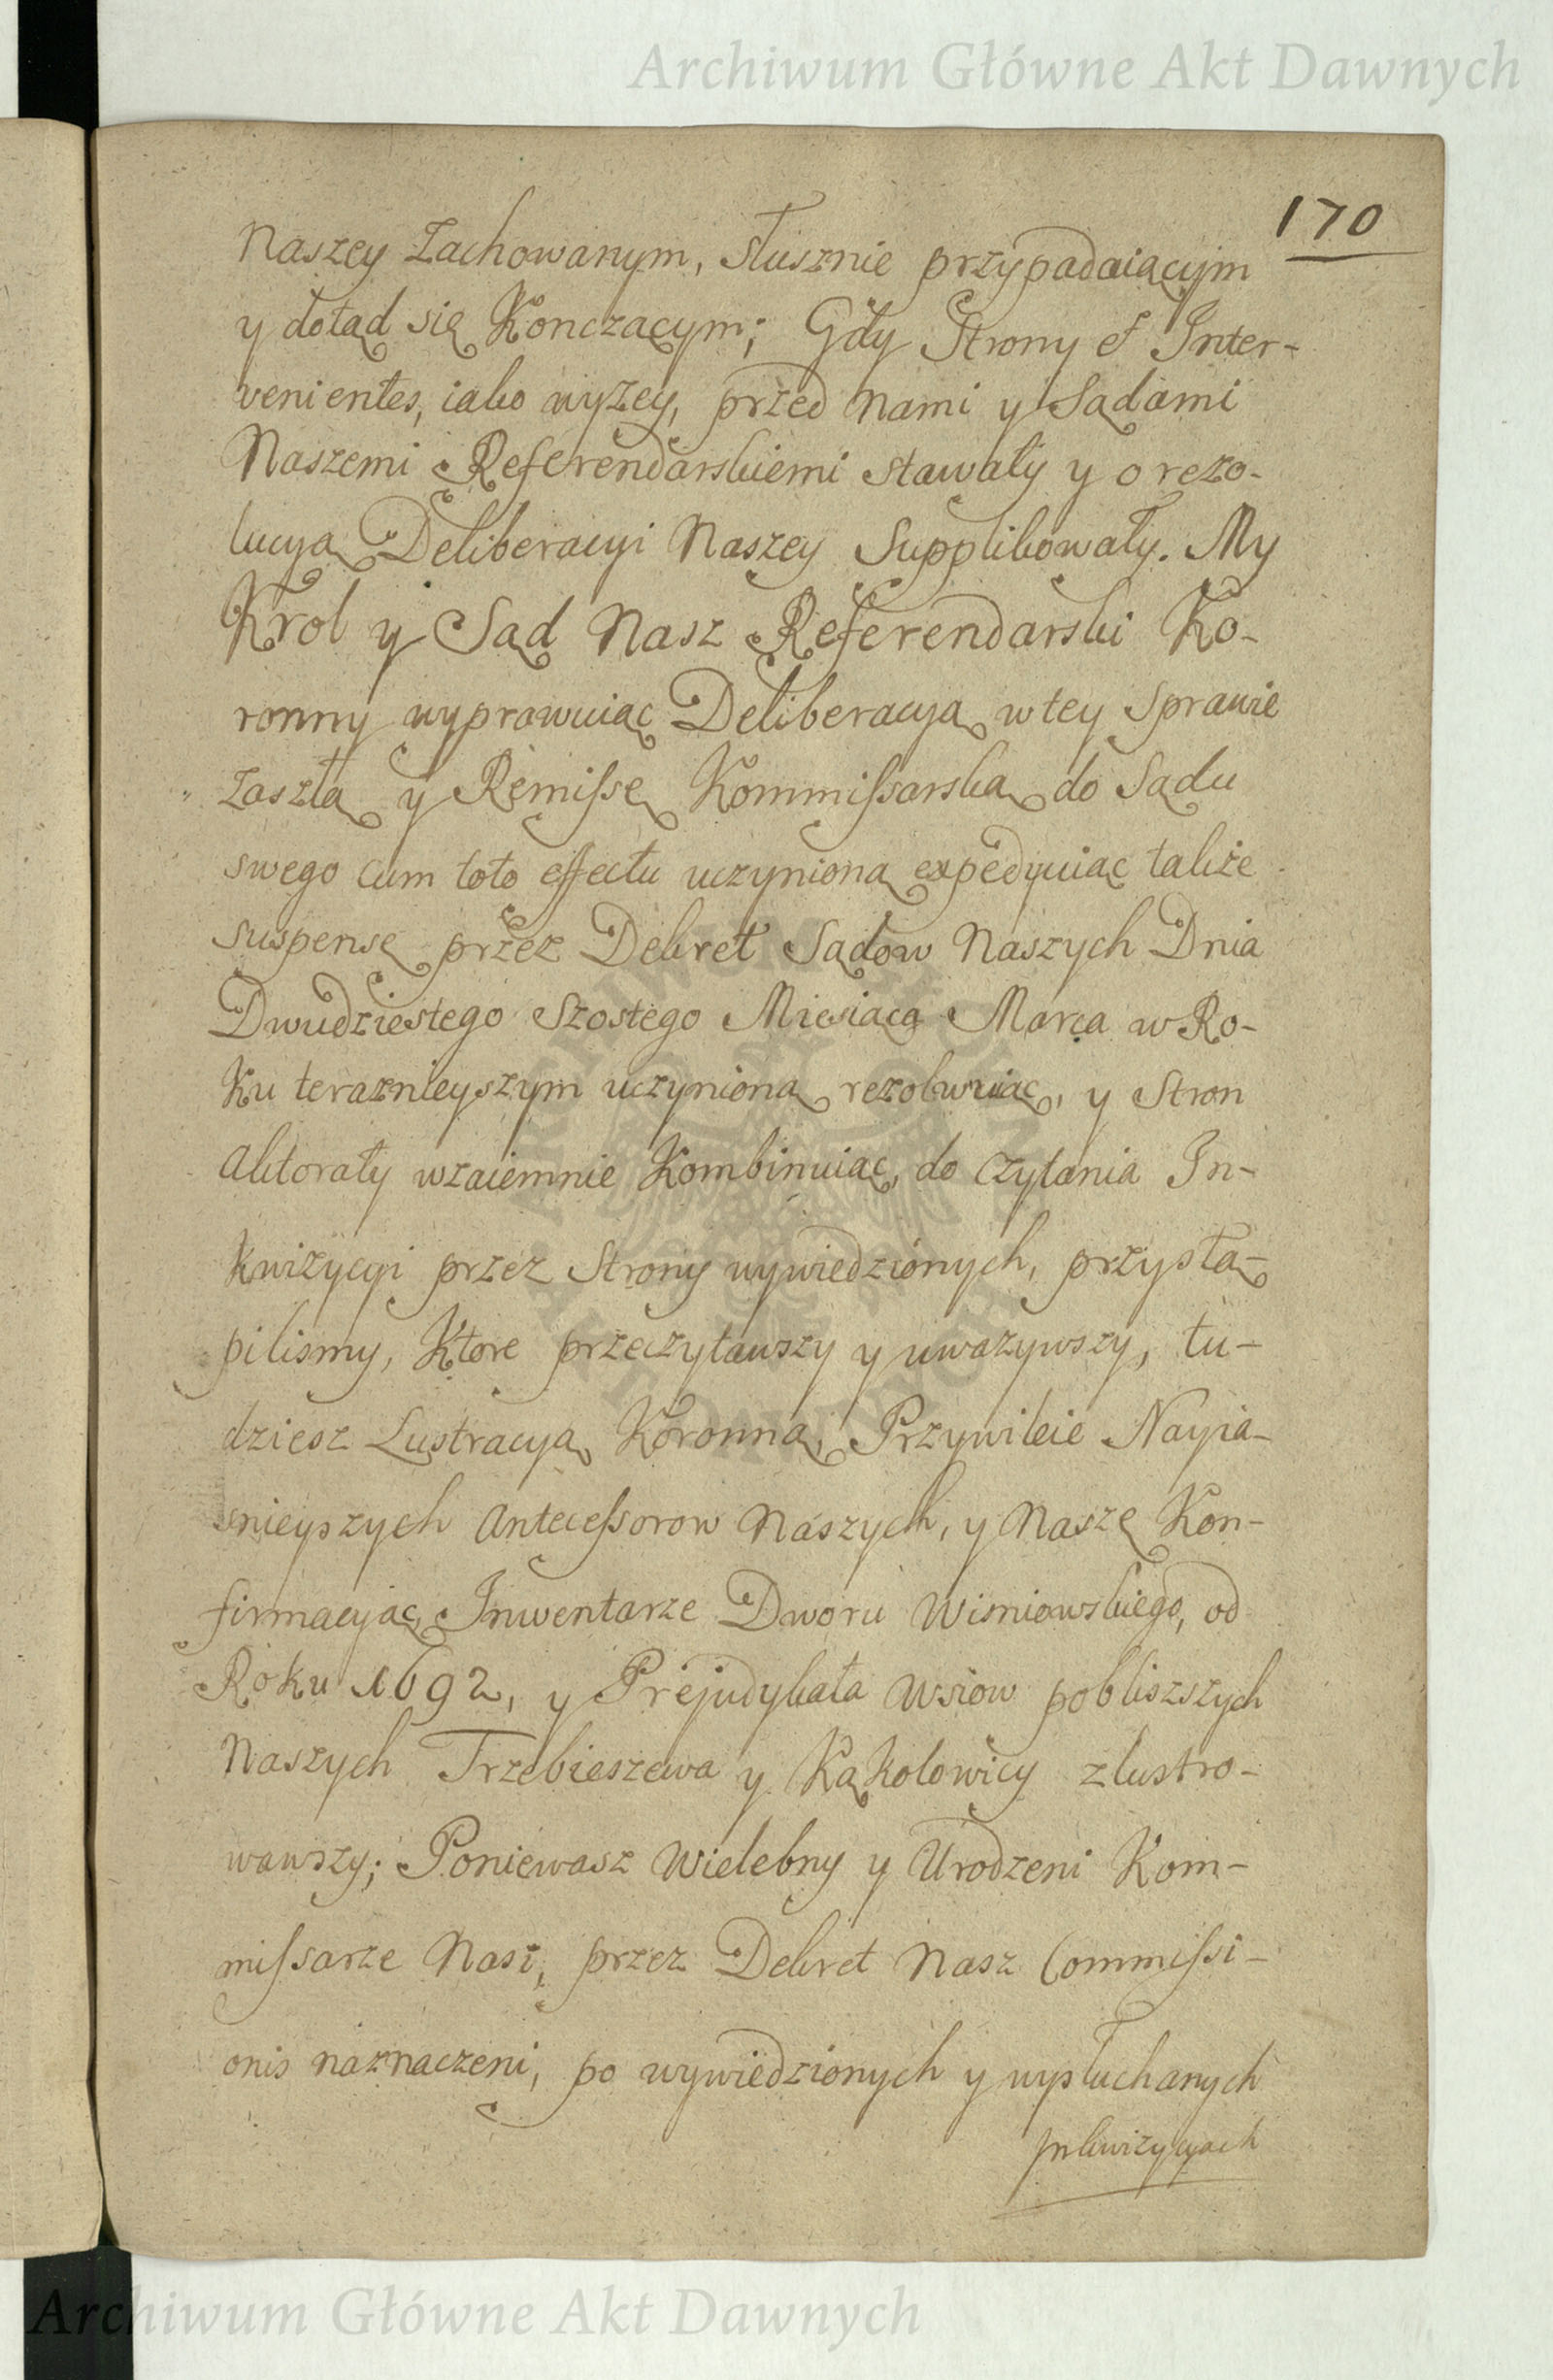 Archiwum Główne Akt Dawnych
170
Naszey Zachowanym, słusznie przypadaiącym
y dotąd się Konczącym; Gdy Strony et Inter-
venientes, iako wyżey, przed Nami y Sądami
Naszemi Referendarskiemi stawały y o rezo-
lucyą Deliberacyi Naszey Supplikowały. My
Krol y Sąd Nasz Referendarski Ko-
ronny wyprawuiąc Deliberacyą w tey Sprawie
Zaszłą y Remissę Kommissarską do Sądu
swego cum toto effectu uczynioną expedyuiąc także
suspensę przez Dekret Sądow Naszych Dnia
Dwudziestego Szostego Miesiąca Marca w Ro-
Ku teraznieyszym uczynioną rezolwuiąc, y Stron
Aktoraty wzaiemnie Kombinuiąc, do Czytania In-
kwizycyi przez Strony wywiedzionych, przystą-
pilismy, Ktore przeczytawszy y uwazywszy, tu-
dziesz Lustracyą Koronną, Przywileie Nayia-
snieyszych Antecessorow Naszych, y Naszę Kon-
firmacyią, Inwentarze Dworu Wisniowskiego, od
Roku 1692, y Prejudykata Wsiow pobliszszych
Naszych Trzebieszewa y Kąkolowicy zlustro-
wawszy; Poniewasz Wielebny y Urodzeni Kom-
missarze Nasi, przez Dekret Nasz Commissi-
onis naznaczeni, po wywiedzionych y wysłuchanych
Inkwizycyach
ARCHIWUM GŁÓWNE AKT DAWNYCH
Archiwum Główne Akt Dawnych